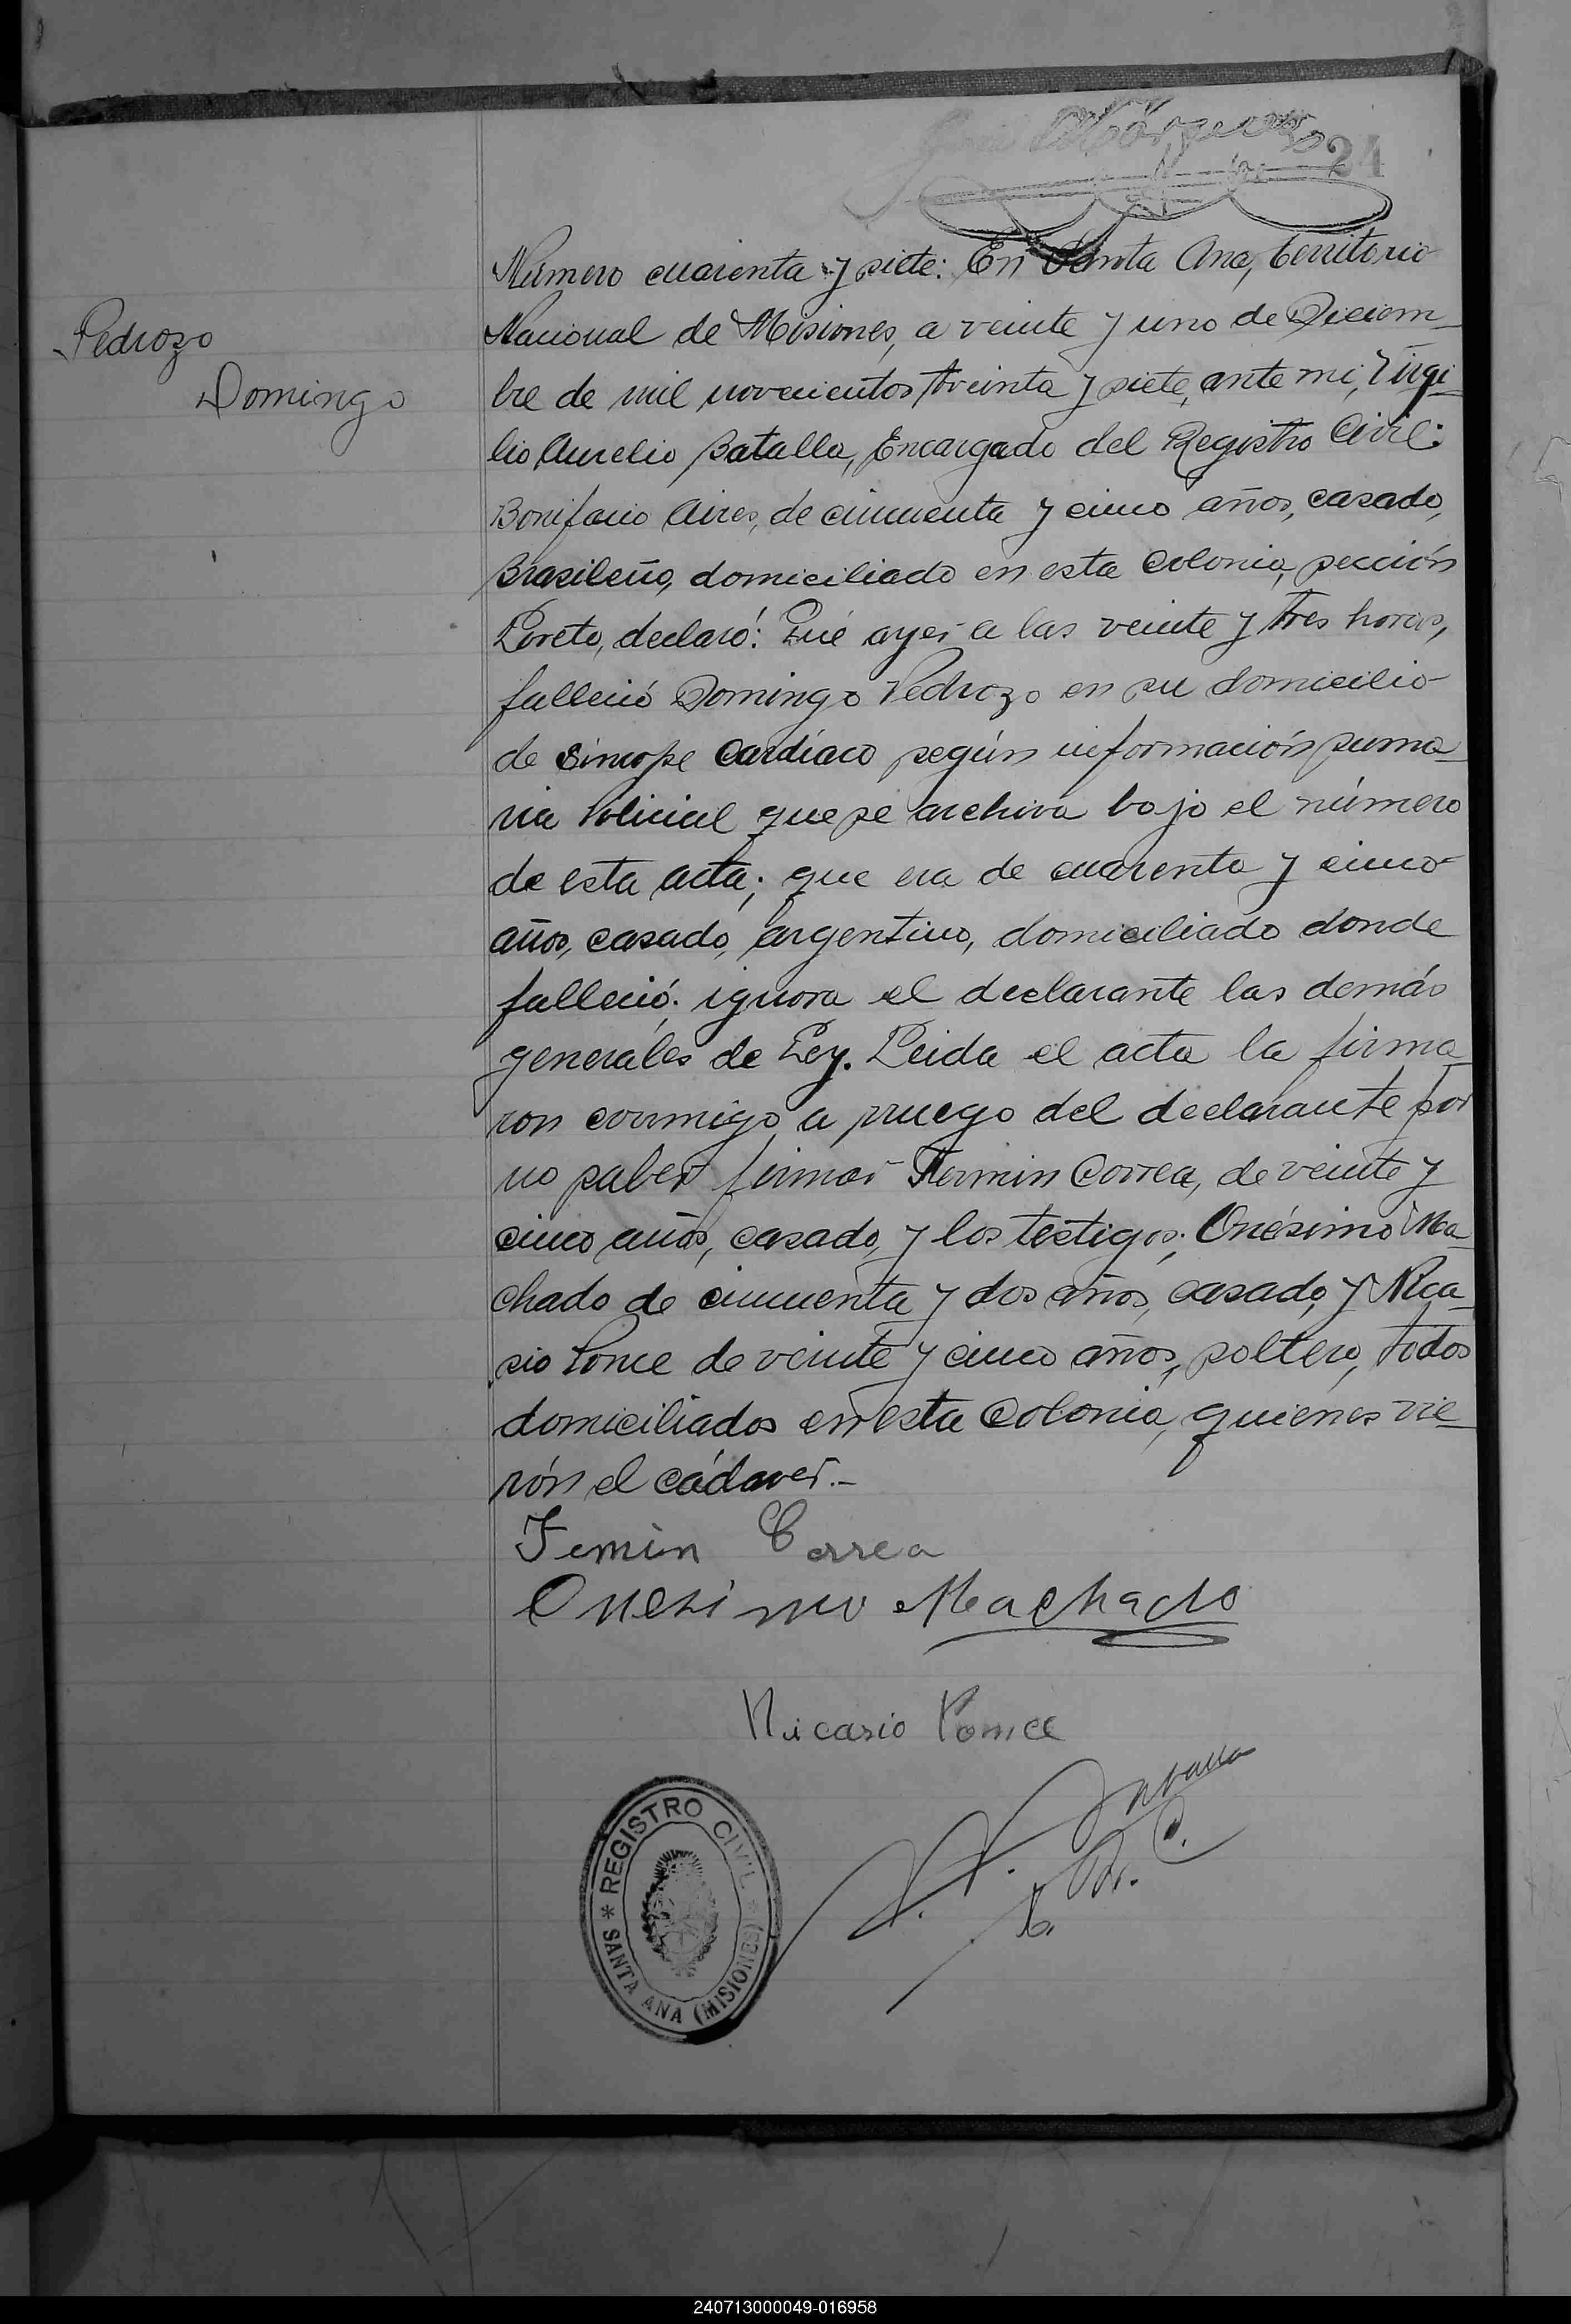 24
Pedrozo
Domingo
Número cuarenta y siete: En Santa Ana, territorio
Nacional de Misiones, a veinte y uno de Diciem-
bre de mil novecientos treinta y siete, ante mi, Virgi-
lio Aurelio Batalla, Encargado del Registro Civil:
Bonifacio Aires, de cincuenta y cinco años, casado,
Brasileño, domiciliado en esta Colonia, sección
Loreto, declaró: Qué ayer a las veinte y tres horas,
falleció Domingo Pedrozo en su domicilio
de síncope cardíaco según información suma-
ria Policial que se archiva bajo el número
de esta acta; que era de cuarenta y cinco
años, casado, argentino, domiciliado donde
falleció; ignora el declarante las demás
generales de Ley. Leida el acta la firma-
ron conmigo, a ruego del declarante por
no saber firmar Fermin Correa, de veinte y
cinco años, casado, y los testigos; Onésimo Ma-
chado de cincuenta y dos años, casado, y Nica-
sio Ponce de veinte y cinco años, soltero, todos
domiciliados en esta Colonia, quienes vie-
rón el cádaver.-
Femin Correa
Onesimo Machado
Nicasio Ponce
REGISTRO CIVIL
SANTA ANA (MISIONES)
240713000049-016958